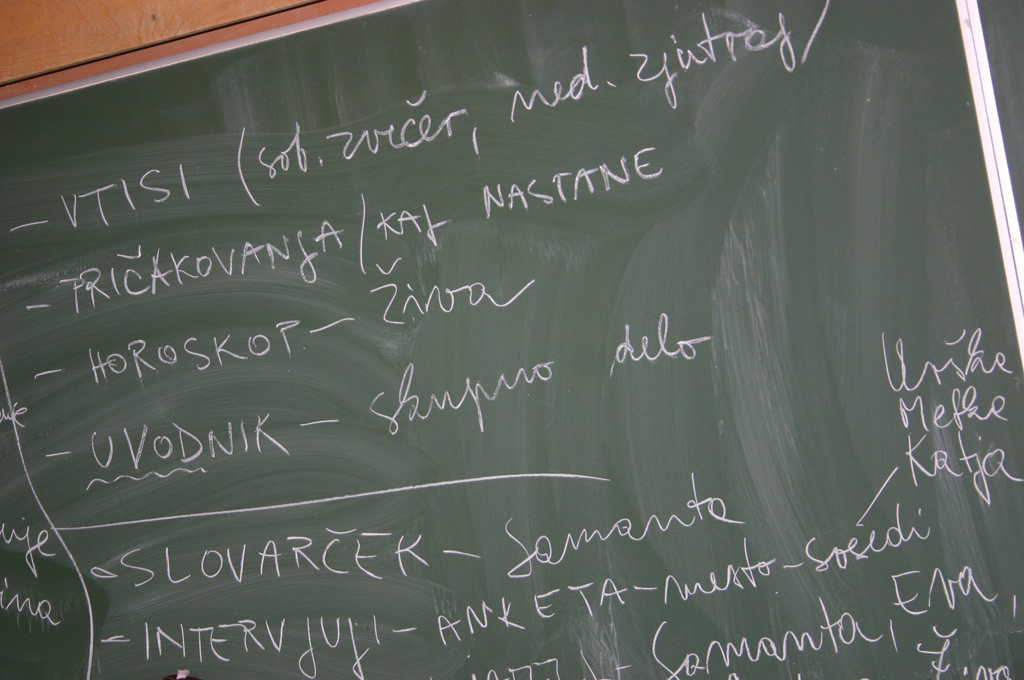 - VTISI (sob. zvečer, med. zjutraj)
- PRIČAKOVANJA / KAJ NASTANE
- HOROSKOP - Živa
- UVODNIK - skupno delo
Urška
Metka
Katja
- SLOVARČEK - Samanta
- INTERVJUJI - ANKETA - mesto - sosedi
- Samanta, Eva,
Živa